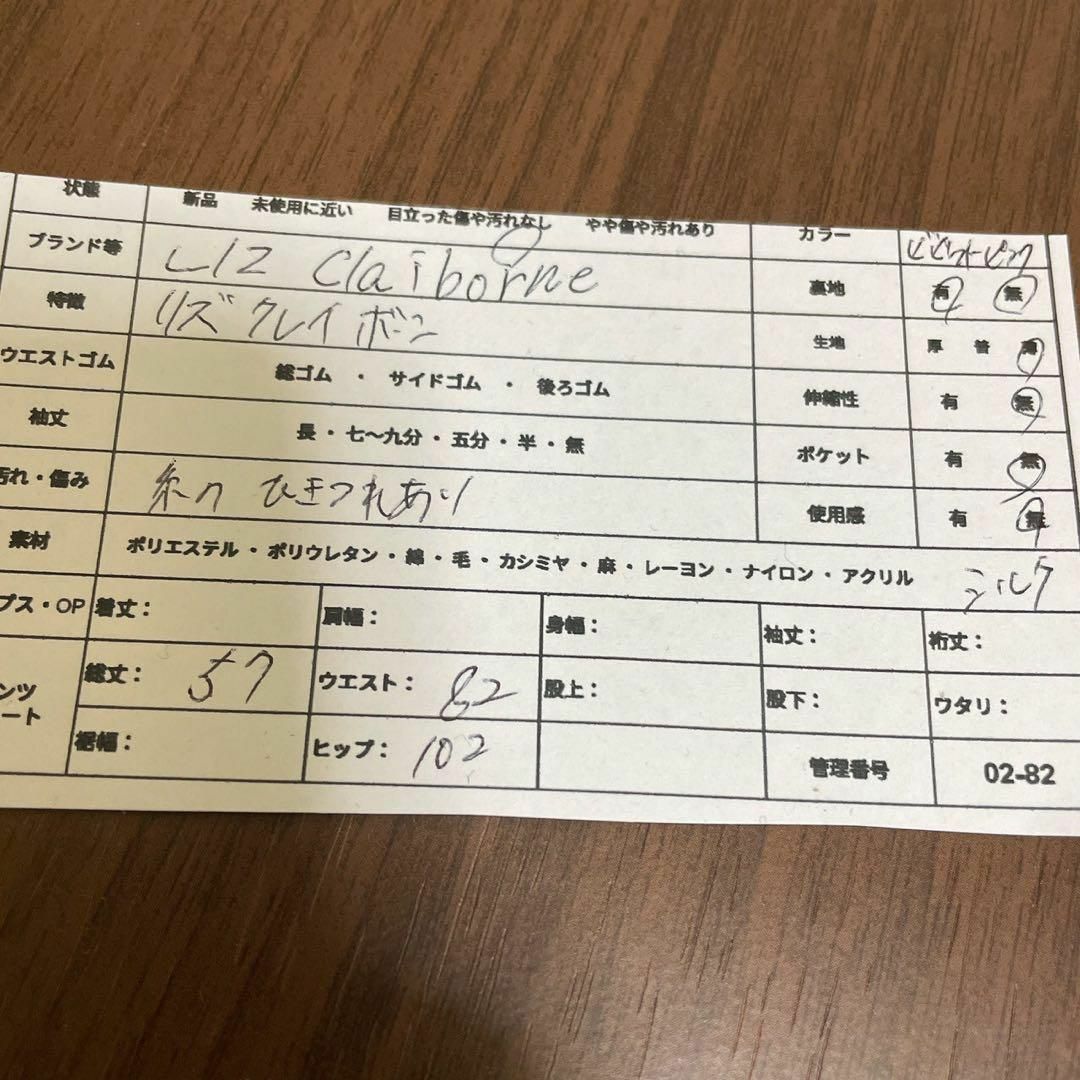 状態 新品 未使用に近い 目立った傷や汚れなし やや傷や汚れあり カラー ビビットピンク
ブランド等 LIZ claiborne 裏地 有 無
特徴 リズ クレイボーン 生地 厚 普 薄
ウエストゴム 総ゴム ・ サイドゴム ・ 後ろゴム 伸縮性 有 無
袖丈 長・七～九分・五分・半・無 ポケット 有 無
汚れ・傷み ひきつれあり 使用感 有 無
素材 ポリエステル・ポリウレタン・綿・毛・カシミヤ・麻・レーヨン・ナイロン・アクリル シルク
プス・OP 着丈： 肩幅： 身幅： 袖丈： 裄丈：
ンツ 総丈： 57 ウエスト： 82 股上： 股下： ワタリ：
ート 裾幅： ヒップ： 102 管理番号 02-82